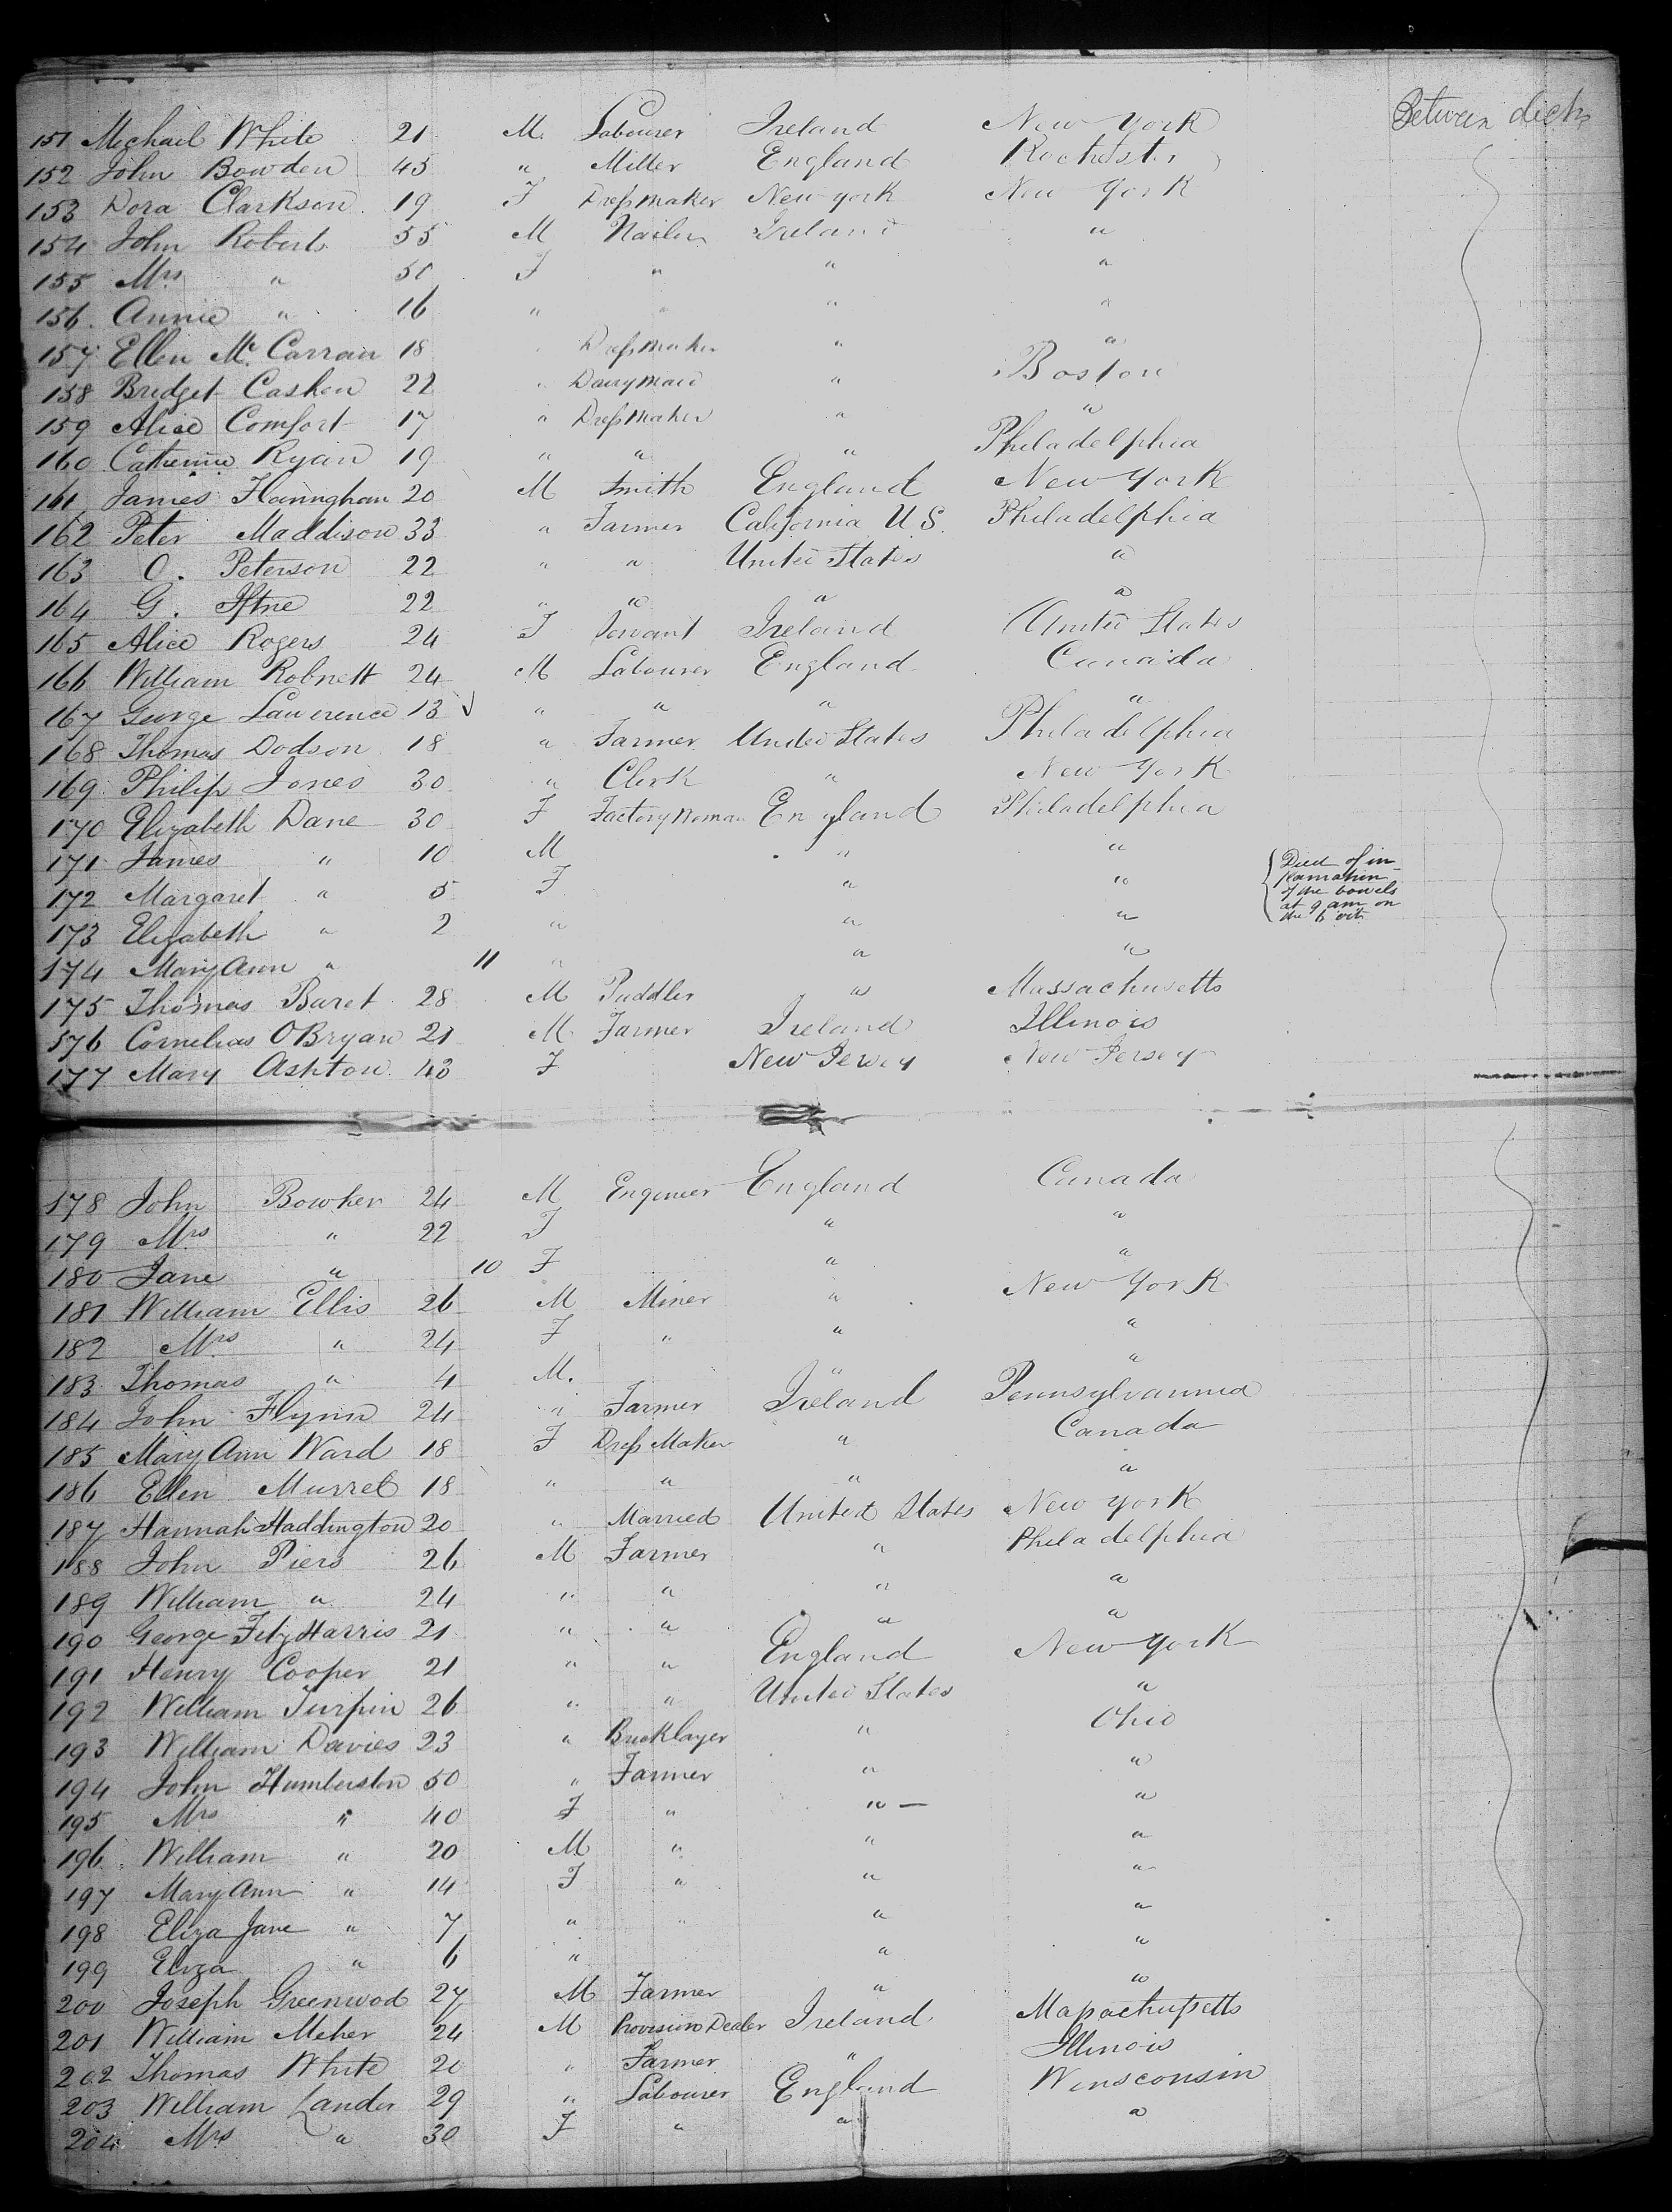 Between decks
151 Michael White 21 M. Labourer Ireland New York
152 John Bowden 45 " Miller England Rochester
153 Dora Clarkson 19 F Dressmaker New york New York
154 John Roberts 55 M Nailer Ireland "
155 Mrs " 50 F " " "
156 Annie " 16 " " " "
157 Ellen Mc Carran 18 " Dressmaker " "
158 Bridget Cashen 22 " Dairymaid " Boston
159 Alice Comfort 17 " Dressmaker " "
160 Catherine Ryan 19 " " " Philadelphia
161 James Flanngham 20 M Smith England New York
162 Peter Maddison 33 " Farmer California U S. Philadelphia
163 O. Peterson 22 " " United States "
164 G. 22 " " " "
165 Alice Rogers 24 F Servant Ireland United States
166 William Robnett 24 M Labourer England Canada
167 George Lawrence 13 " " " "
168 Thomas Dodson 18 " Farmer United States Philadelphia
169 Philip Jones 30 " Clerk " New York
170 Elizabeth Dane 30 F Factory Woman England Philadelphia
171 James " 10 M " "
172 Margaret " 5 F " " Died of in-
flamation
of the bowels
at 9 am on
the 6 oct
173 Elizabeth " 2 " " "
174 Mary Ann " 11 " " "
175 Thomas Baret 28 M Puddler " Massachusetts
176 Cornelias OBryan 21 M Farmer Ireland Illinois
177 Mary Ashton 43 F New Jersey New Jersey
178 John Bowker 24 M Engineer England Canada
179 Mrs " 22 F " "
180 Jane " 10 F " "
181 William Ellis 26 M Miner " New York
182 Mrs " 24 F " " "
183 Thomas " 4 M. " "
184 John Flynn 24 " Farmer Ireland Pennsylvannia
185 Mary Ann Ward 18 F Dress Maker " Canada
186 Ellen Murret 18 " " " "
187 Hannah Haddington 20 " Married United States New York
188 John Piers 26 M Farmer " Philadelphia
189 William " 24 " " " "
190 George FitzHarris 21 " " " "
191 Henry Cooper 21 " " England New York
192 William Turpin 26 " " United States "
193 William Davies 23 " Bricklayer " Ohio
194 John Humberston 50 " Farmer " "
195 Mrs " 40 F " " "
196 William " 20 M " " "
197 Mary Ann " 14 F " " "
198 Eliza Jane " 7 " " " "
199 Eliza " 6 " " "
200 Joseph Greenwood 27 M Farmer " "
201 William Meher 24 M Provision Dealer Ireland Massachussetts
202 Thomas White 20 " Farmer " Illinois
203 William Lander 29 " Labourer England Winsconsin
204 Mrs " 30 F " " "